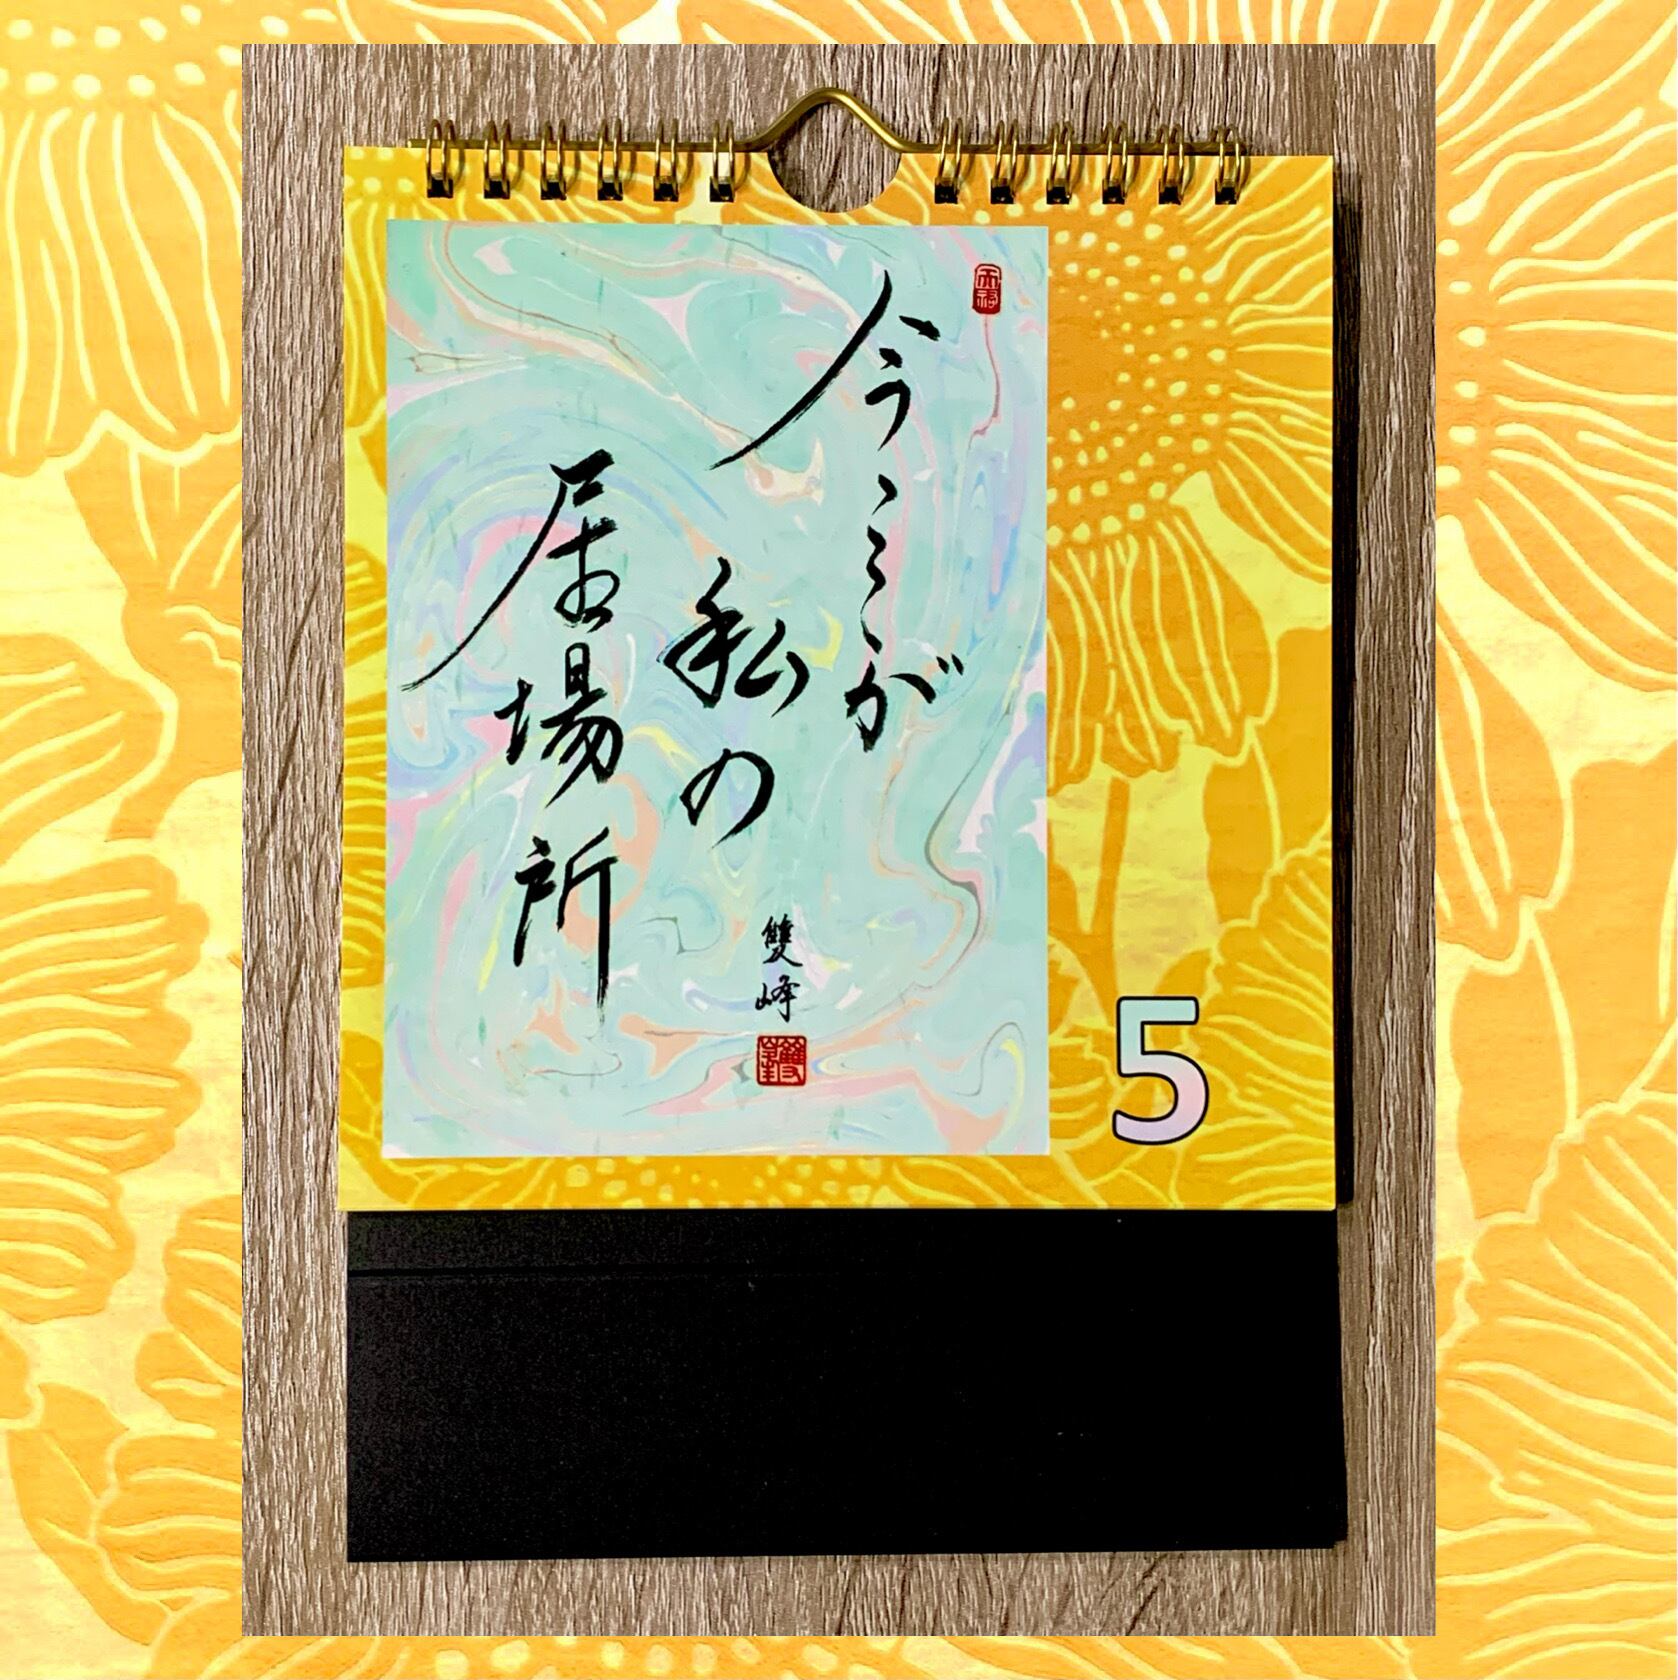 今ここが
私の
居場所
雙峰
雙峰
5